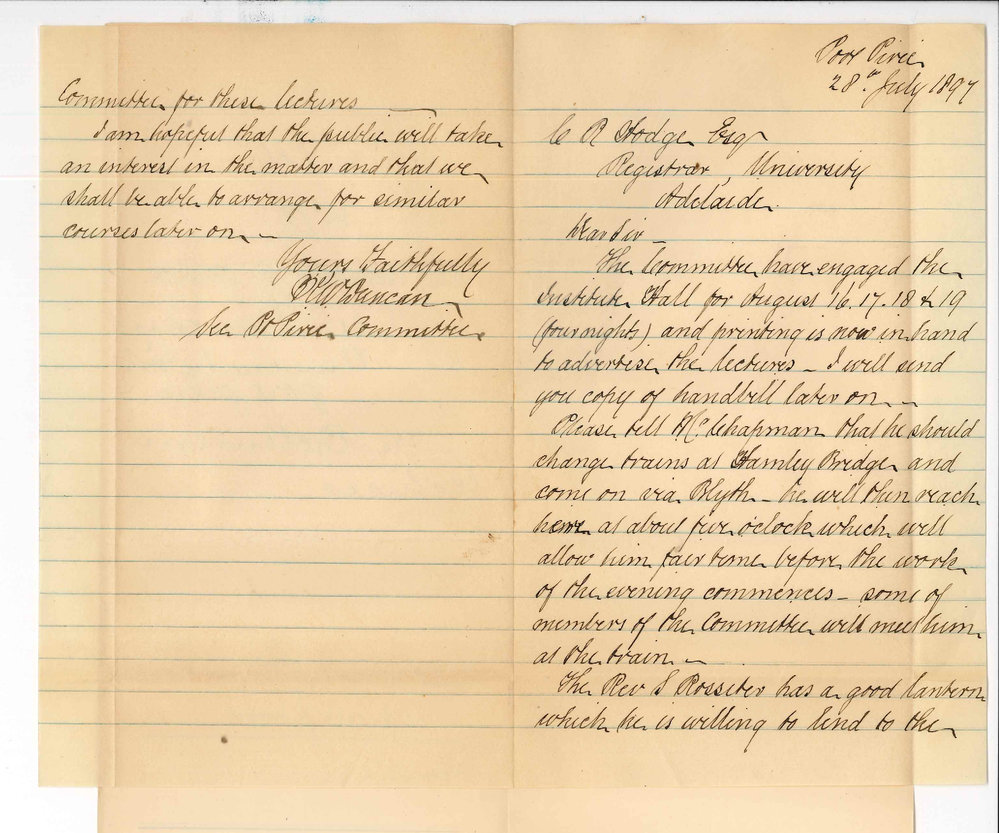 Port Pirie
28th July 1897
C R Hodge Esq
Registrar, University
Adelaide
Dear Sir —
The Committee have engaged the
Institute Hall for August 16. 17. 18 & 19
(four nights) and printing is now in hand
to advertise the lectures — I will send
you copy of handbill later on —
Please tell Mr Chapman that he should
change trains at Hamley Bridge and
come on via Blyth — he will then reach
here at about five o'clock which will
allow him fair time before the work
of the evening commences — some of
members of the Committee will meet him
at the train —
The Rev S Rossiter has a good lantern
which he is willing to lend to the
Committee for these lectures —
I am hopeful that the public will take
an interest in the matter and that we
shall be able to arrange for similar
courses later on —
Yours Faithfully
Duncan
Sec Pt Pirie Committee